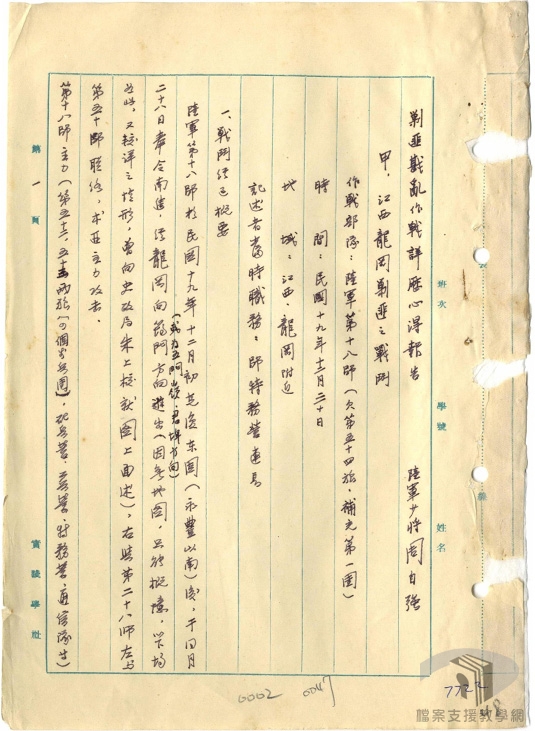 剿匪戡亂作戰詳歷心得報告
陸軍少將周自強
甲、江西龍岡剿匪之戰鬥
作戰部隊：陸軍第十八師（欠第五十四旅、補充第一團）
時間：民國十九年十二月三十日
地域：江西、龍岡附近
記述者當時職務：師特務營連長
一、戰鬥經過概要
陸軍第十八師於民國十九年十二月初克復東固（永豐以南）後，于同月
二十八日奉令南進，經龍岡向 方向進出（因無地圖，只能概憶，以下均
（或為五門嶺、君埠方向）
如此，又較詳之情形，曾向史政局朱上校就圖上面述），右與第二十八師左與
第五十師聯絡，求匪主力攻击。
第十八師主力（第五十二、五十三兩旅（四個步兵團），砲兵營、工兵營、特務營、通信隊等）
班次
學號
姓名
第一頁
實踐學社
0002
0047
檔案支援教學網